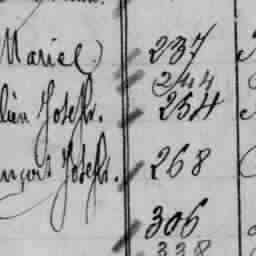 Marie 237
244
lien Joseph. 254
nçois Joseph. 268
306
338